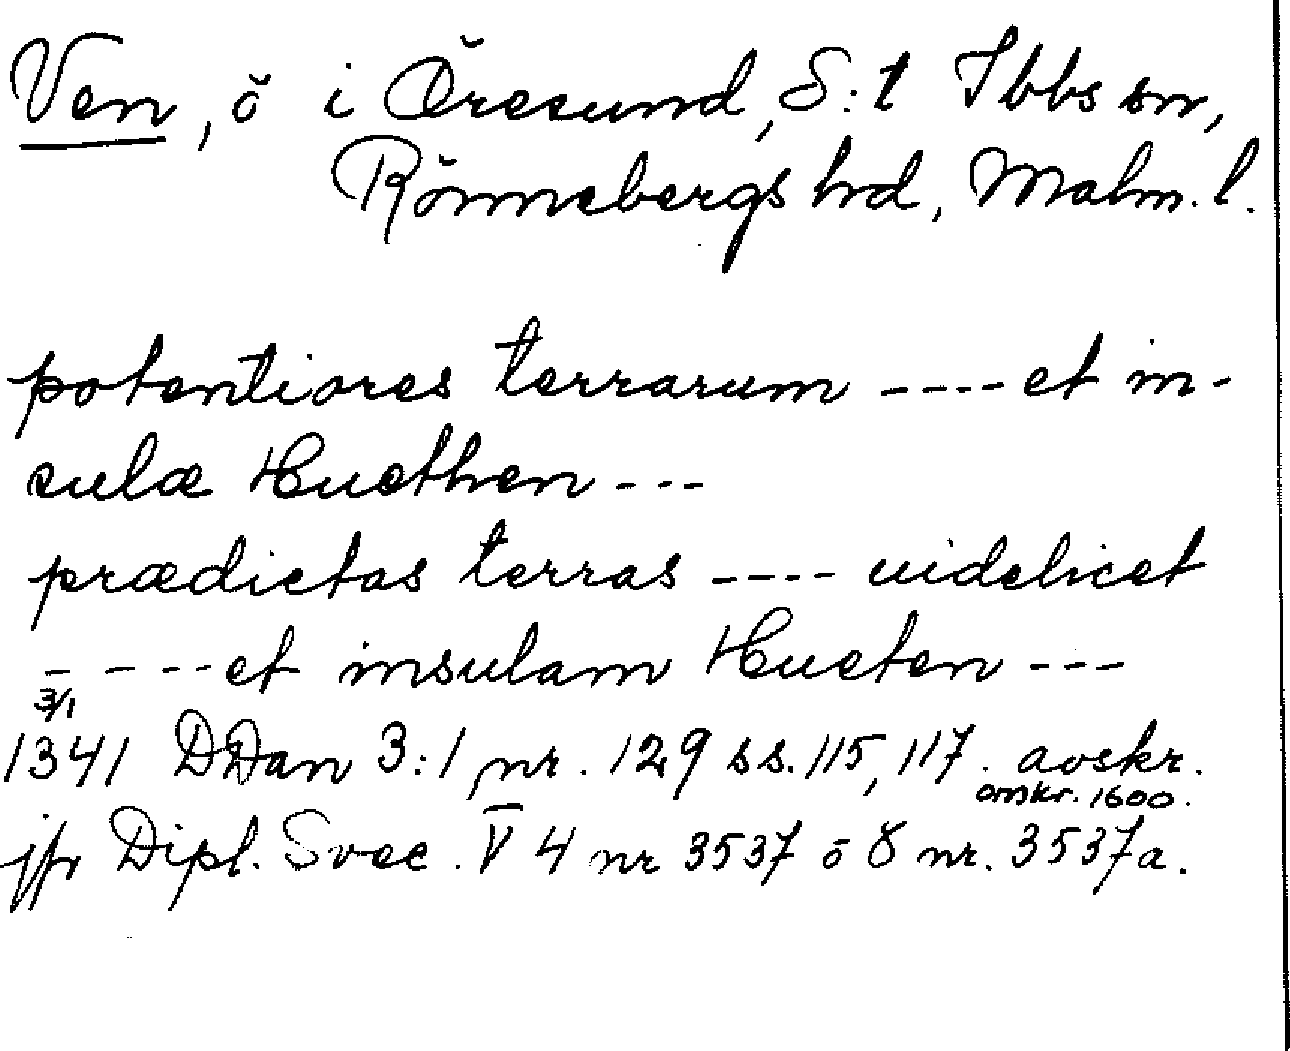 Ven, ö i Öresund, S:t Ibbs sn,
Rönnebergs hrd, Malm. l.
potentiores terrarum ---- et in-
sulæ Huethen ---
prædictas terras ---- uidelicet
- - - - et insulam Hueten ---
3/1
1341 DDan 3:1 nr. 129 ss. 115, 117. avskr.
omkr. 1600.
jfr Dipl. Svec. V 4 nr 3537 o 8 nr. 3537a.